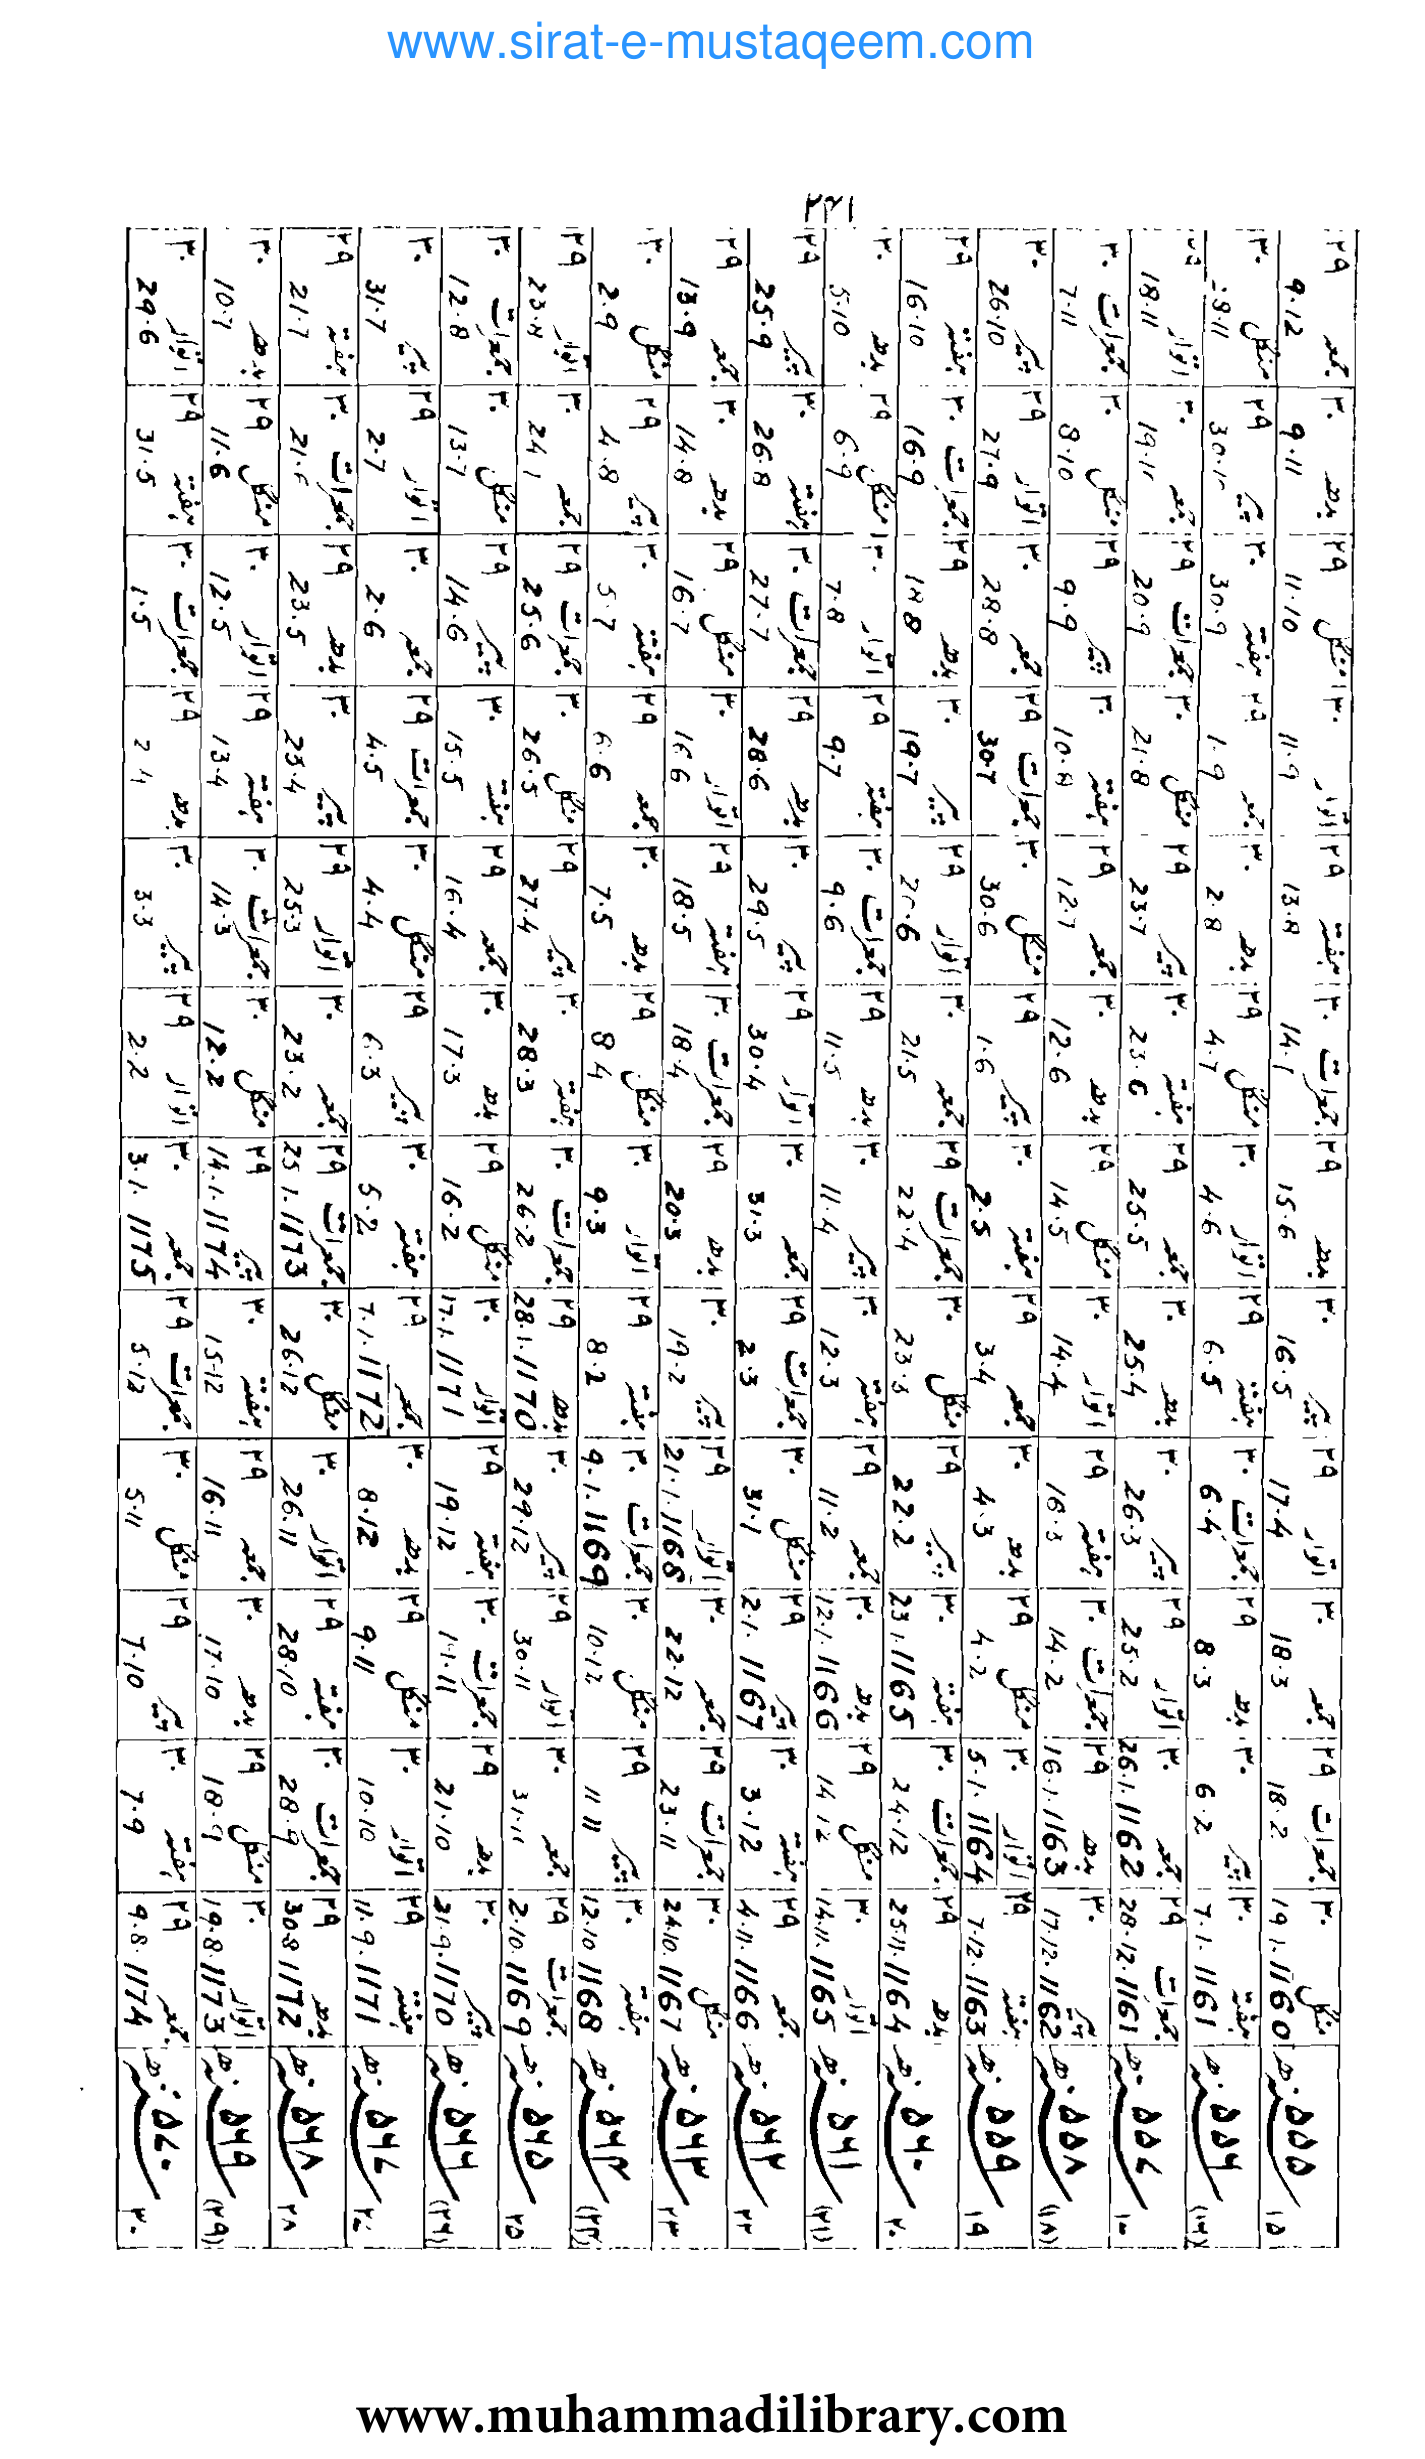 www.sirat-e-mustaqeem.com
۲۲۱
۱۵ ۵۵۵ھ منگل ۳۰ 19.1.1160 جمعرات ۲۹ 18.2 جمعہ ۳۰ 18.3 اتوار ۲۹ 17.4 پیر ۳۰ 16.5 بدھ ۲۹ 15.6 جمعرات ۳۰ ہفتہ ۲۹ 13.8 اتوار ۳۰ 11.9 منگل ۲۹ 11.10 بدھ ۳۰ 9.11 جمعہ ۲۹ 9.12
(۱۶) ۵۵۶ھ ہفتہ ۳۰ 7.1.1161 پیر ۳۰ 6.2 بدھ ۲۹ 8.3 جمعرات ۳۰ 6.4 ہفتہ ۲۹ 6.5 اتوار ۳۰ 4.6 منگل ۲۹ 4.7 بدھ ۳۰ 2.8 جمعہ ۲۹ 1.9 ہفتہ ۳۰ 30.9 پیر ۲۹ منگل ۳۰
۵۵۷ھ جمعرات ۲۹ 28.12.1161 جمعہ ۳۰ 26.1.1162 اتوار ۲۹ 25.2 پیر ۳۰ 26.3 بدھ ۳۰ 25.4 جمعہ ۲۹ 25.5 ہفتہ ۳۰ 23.6 پیر ۲۹ 23.7 منگل ۳۰ 21.8 جمعرات ۲۹ 20.9 جمعہ ۳۰ اتوار ۲۹ 18.11
(۱۸) ۵۵۸ھ پیر ۳۰ 17.12.1162 بدھ ۲۹ 16.1.1163 جمعرات ۳۰ 14.2 ہفتہ ۲۹ 16.3 اتوار ۳۰ 14.4 منگل ۲۹ 14.5 بدھ ۳۰ 12.6 جمعہ ۲۹ 12.7 ہفتہ ۳۰ 10.8 پیر ۲۹ 9.9 منگل ۳۰ 8.10 جمعرات ۳۰ 7.11
۱۹ ۵۵۹ھ ہفتہ ۲۹ 7.12.1163 اتوار ۳۰ 5.1.1164 منگل ۲۹ 4.2 بدھ ۳۰ 4.3 جمعہ ۲۹ 3.4 ہفتہ ۳۰ 2.5 پیر ۲۹ 1.6 منگل ۳۰ 30.6 جمعرات ۲۹ 30.7 جمعہ ۳۰ 28.8 اتوار ۲۹ 27.9 پیر ۳۰ 26.10
۲۰ ۵۶۰ھ بدھ ۲۹ 25.11.1164 جمعرات ۳۰ 24.12 ہفتہ ۳۰ 23.1.1165 پیر ۲۹ 22.2 منگل ۳۰ 23.3 جمعرات ۲۹ 22.4 جمعہ ۳۰ 21.5 اتوار ۲۹ 20.6 پیر ۳۰ 19.7 بدھ ۲۹ 18.8 جمعرات ۳۰ 16.9 ہفتہ ۲۹ 16.10
(۲۱) ۵۶۱ھ اتوار ۳۰ 14.11.1165 منگل ۲۹ 14.12 بدھ ۳۰ 12.1.1166 جمعہ ۲۹ 11.2 ہفتہ ۳۰ 12.3 پیر ۳۰ 11.4 بدھ ۲۹ 11.5 جمعرات ۳۰ 9.6 ہفتہ ۲۹ 9.7 اتوار ۳۰ 7.8 منگل ۲۹ 6.9 بدھ ۳۰ 5.10
۲۲ ۵۶۲ھ جمعہ ۲۹ 4.11.1166 ہفتہ ۳۰ 3.12 پیر ۲۹ 2.1.1167 منگل ۳۰ 31.1 جمعرات ۲۹ 2.3 جمعہ ۳۰ 31.3 اتوار ۲۹ 30.4 پیر ۳۰ 29.5 بدھ ۲۹ 28.6 جمعرات ۳۰ 27.7 ہفتہ ۳۰ 26.8 پیر ۲۹ 25.9
۲۳ ۵۶۳ھ منگل ۳۰ 24.10.1167 جمعرات ۲۹ 23.11 جمعہ ۳۰ 22.12 اتوار ۲۹ 21.1.1168 پیر ۳۰ 19.2 بدھ ۲۹ 20.3 جمعرات ۳۰ 18.4 ہفتہ ۲۹ 18.5 اتوار ۳۰ 16.6 منگل ۲۹ 16.7 بدھ ۳۰ 14.8 جمعہ ۲۹ 13.9
(۲۴) ۵۶۴ھ ہفتہ ۳۰ 12.10.1168 پیر ۲۹ 11.11 منگل ۳۰ 10.12 جمعرات ۳۰ 9.1.1169 ہفتہ ۲۹ 8.2 اتوار ۳۰ 9.3 منگل ۲۹ 8.4 بدھ ۳۰ 7.5 جمعہ ۲۹ 6.6 ہفتہ ۳۰ 5.7 پیر ۲۹ 4.8 منگل ۳۰ 2.9
۲۵ ۵۶۵ھ جمعرات ۲۹ 2.10.1169 جمعہ ۳۰ اتوار ۲۹ 30.11 پیر ۳۰ 29.12 بدھ ۲۹ 28.1.1170 جمعرات ۳۰ 26.2 ہفتہ ۳۰ 28.3 پیر ۲۹ 27.4 منگل ۳۰ 26.5 جمعرات ۲۹ 25.6 جمعہ ۳۰ اتوار ۲۹ 23.8
(۲۶) ۵۶۶ھ پیر ۳۰ 21.9.1170 بدھ ۲۹ 21.10 جمعرات ۳۰ ہفتہ ۲۹ 19.12 اتوار ۳۰ 17.1.1171 منگل ۲۹ 16.2 بدھ ۳۰ 17.3 جمعہ ۲۹ 16.4 ہفتہ ۳۰ 15.5 پیر ۲۹ 14.6 منگل ۳۰ 13.7 جمعرات ۳۰ 12.8
۵۶۷ھ ہفتہ ۲۹ 11.9.1171 اتوار ۳۰ 10.10 منگل ۲۹ 9.11 بدھ ۳۰ 8.12 جمعہ ۲۹ 7.1.1172 ہفتہ ۳۰ 5.2 پیر ۲۹ 6.3 منگل ۳۰ 4.4 جمعرات ۲۹ 4.5 جمعہ ۳۰ 2.6 اتوار ۲۹ 2.7 پیر ۳۰ 31.7
۲۸ ۵۶۸ھ بدھ ۲۹ 30.8.1172 جمعرات ۳۰ 28.9 ہفتہ ۲۹ 28.10 اتوار ۳۰ 26.11 منگل ۳۰ 26.12 جمعرات ۲۹ 25.1.1173 جمعہ ۳۰ 23.2 اتوار ۲۹ 25.3 پیر ۳۰ 23.4 بدھ ۲۹ 23.5 جمعرات ۳۰ 21.6 ہفتہ ۲۹ 21.7
(۲۹) ۵۶۹ھ اتوار ۳۰ 19.8.1173 منگل ۲۹ 18.9 بدھ ۳۰ 17.10 جمعہ ۲۹ 16.11 ہفتہ ۳۰ 15.12 پیر ۲۹ 14.1.1174 منگل ۳۰ 12.2 جمعرات ۳۰ 14.3 ہفتہ ۲۹ 13.4 اتوار ۳۰ 12.5 منگل ۲۹ 11.6 بدھ ۳۰ 10.7
۳۰ ۵۷۰ھ جمعہ ۲۹ 9.8.1174 ہفتہ ۳۰ 7.9 پیر ۲۹ 7.10 منگل ۳۰ 5.11 جمعرات ۲۹ 5.12 جمعہ ۳۰ 3.1.1175 اتوار ۲۹ 2.2 پیر ۳۰ 3.3 بدھ ۲۹ 2.4 جمعرات ۳۰ 1.5 ہفتہ ۲۹ 31.5 اتوار ۳۰ 29.6
www.muhammadilibrary.com